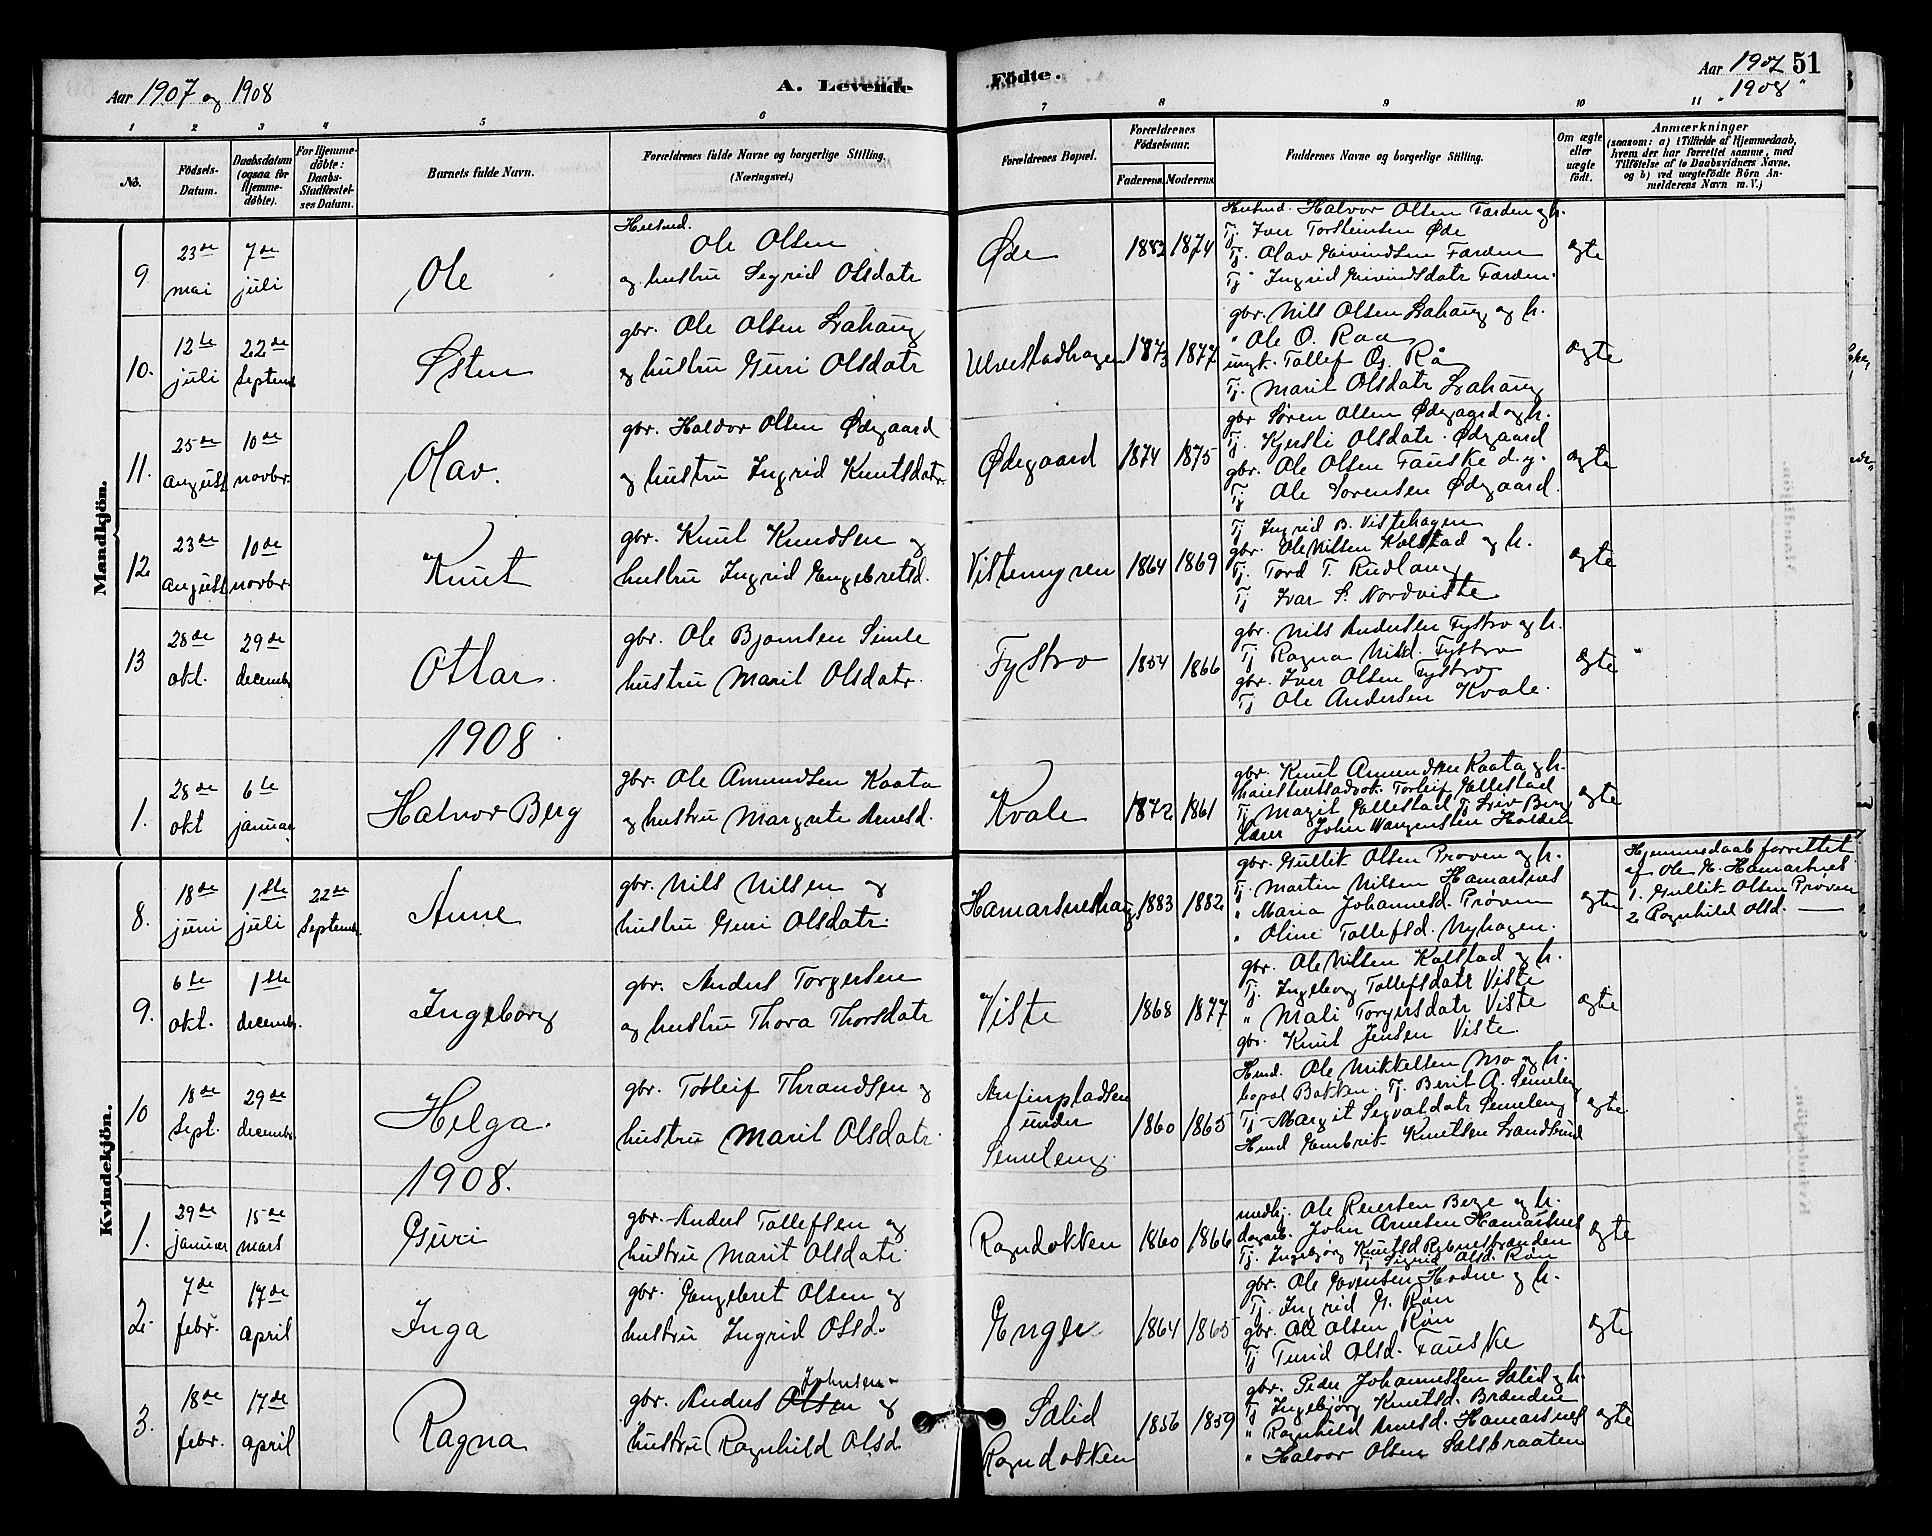 Aar 1907 og 1908
A. Levende
Födte.
Aar 1907 51
" 1908 "
1 2 3 4 5 6 7 8 9 10 11
No.
Födsels-Datum.
Daabsdatum (ogsaa for Hjemme-döbte).
For Hjemme-döbte: Daabs-Stadfæstel-ses Datum.
Barnets fulde Navn.
Forældrenes fulde Navne og borgerlige Stilling.
(Næringsvei.)
Forældrenes Bopæl.
Forældrenes Födselsaar.
Faderens. Moderens.
Faddernes Navne og borgerlige Stilling.
Om ægte eller uægte födt.
Anmærkninger
(saasom: a) i Tilfælde af Hjemmedaab,
hvem der har forrettet samme, med
Tilföielse af to Daabsvidners Navne,
og b) ved uægtefödte Börn An-
melderens Navn m. V.)
Mandkjön.
9 23de mai 7de juli Ole
Husmd. Ole Olsen
og hustru Sigrid Olsdatr
Øde 1883 1874
Husmd. Halvor Olsen Færden og h.
Tj. Iver Torsteinsen Øde
Tj. Olav Eivindsen Færden
Tj Ingrid Eivindsdatr Færden.
ægte
10. 12te juli 22de Septemb Østen
gbr. Ole Olsen Lahaug
og hustru Guri Olsdatr
Ulvestadhagen 1873 1877
gbr. Nils Olsen Lahaug og h.
" Ole O. Raa
ungk. Tollef Os. Rå
Tj. Marit Olsdatr Lahaug
ægte
11. 25de august 10de novbr. Olav.
gbr. Haldor Olsen Ødegaard
og hustru Ingrid Knutsdatr
Ødegaard 1874 1875
gbr Sören Olsen Ødegaard og h.
Tj. Kjersti Olsdatr. Ødegaard
gbr. Ole Olsen Fauske d.y.
Tj Ole Sorensen Ødegaard.
ægte
12 23de august 10de novbr. Knut
gbr. Knut Knudsen og
hustru Ingrid Engebretsd.
Vistemyren 1864 1869
Tj Ingrid B. Vistehagen
gbr. Ole Nilsen Kolstad og h.
Tj. Tord T. Rudlang
Tj Ivar S. Nordviste
ægte
13 28de okt. 29de decembr Ottar.
gbr. Ole Bjørnsen Simle
hustru Marit Olsdatr.
Fystro 1854 1866
gbr. Nils Andersen Fystro og h.
Tj Ragna Nilsd. Fystro
gbr. Iver Olsen Fystro
Tj Ole Andersen Kvale.
ægte
1908
1. 28de okt 6te januar Halvor Berg
gbr. Ole Amundsen Kaata
og hustru Margrete Arnesd.
Kvale 1872 1861
gbr. Knut Amundsen Kaata og h.
Høiestretsadvok. Torleif Ellestad
Tj Margit Ellestad Tj Liv Berg
Lærer John Wangensten Holden
ægte
Kvindekjön.
8. 18de juni 1ste juli 22de Septemb. Anne
gbr. Nils Nilsen og
hustru Guri Olsdatr.
Hamarsneshaug 1883 1882
gbr. Gullik Olsen Prøven og h.
Tj. Martin Nilsen Hamarsnes
" Maria Johannesd. Prøven
" Oline Tollefsd. Nyhagen.
ægte
Hjemmedaab forrettet
af Ole N. Hamarsnes
1. Gullik Olsen Prøven
2 Ragnhild Olsd. —
9. 6te okt. 1ste decembr. Ingeborg
gbr. Anders Torgersen
og hustru Thora Thorsdatr
Viste 1868 1877
gbr. Ole Nilsen Kolstad og h.
Tj. Ingeborg Tollefsdatr Viste
" Mali Torgersdatr Viste
gbr. Knut Jensen Viste
ægte
10 18de Sept. 29de decembr Helga.
gbr. Tolleif Thrandsen og
hustru Marit Olsdatr.
Arfinpladsen
under
Semeleng. 1860 1865
Husmd. Ole Mikkelsen Mo og h.
bopæl Bakken. Tj. Berit A. Semeleng
Tj. Margit Sigvatdatr Semeleng
Husmd Embrik Knutsen Sandbrud
ægte
1908.
1. 29de januar 15de mars Guri
gbr. Anders Tollefsen og
hustru Marit Olsdatr.
Rogndokken 1860 1866
medhj. Ole Reiersen Berge og h.
dagarb. John Arnesen Hamarsnes
Tj. Ingebjørg Knutsd Rebnebrænden
Tj Sigrid Olsd. Røn
ægte
2. 7de febr. 17de april Inga
gbr. Engebret Olsen og
hustru Ingrid Olsd.
Enger 1864 1865
gbr. Ole Evensen Hodne og h.
Tj. Ingrid G. Røn
gbr. Ole Olsen Røn
Tj Turid Olsd. Fauske
ægte
3. 18de febr. 17de april Ragna
Johnsen
gbr. Anders Olsen og
hustru Ragnhild Olsd
Solid
Rogndokken 1856 1859
gbr. Peder Johannessen Solid og h.
Tj Ingebjørg Knutsd. Brænden
" Ragnhild Arnesd. Hamarsnes
" Halvor Olsen Solsbraaten
ægte